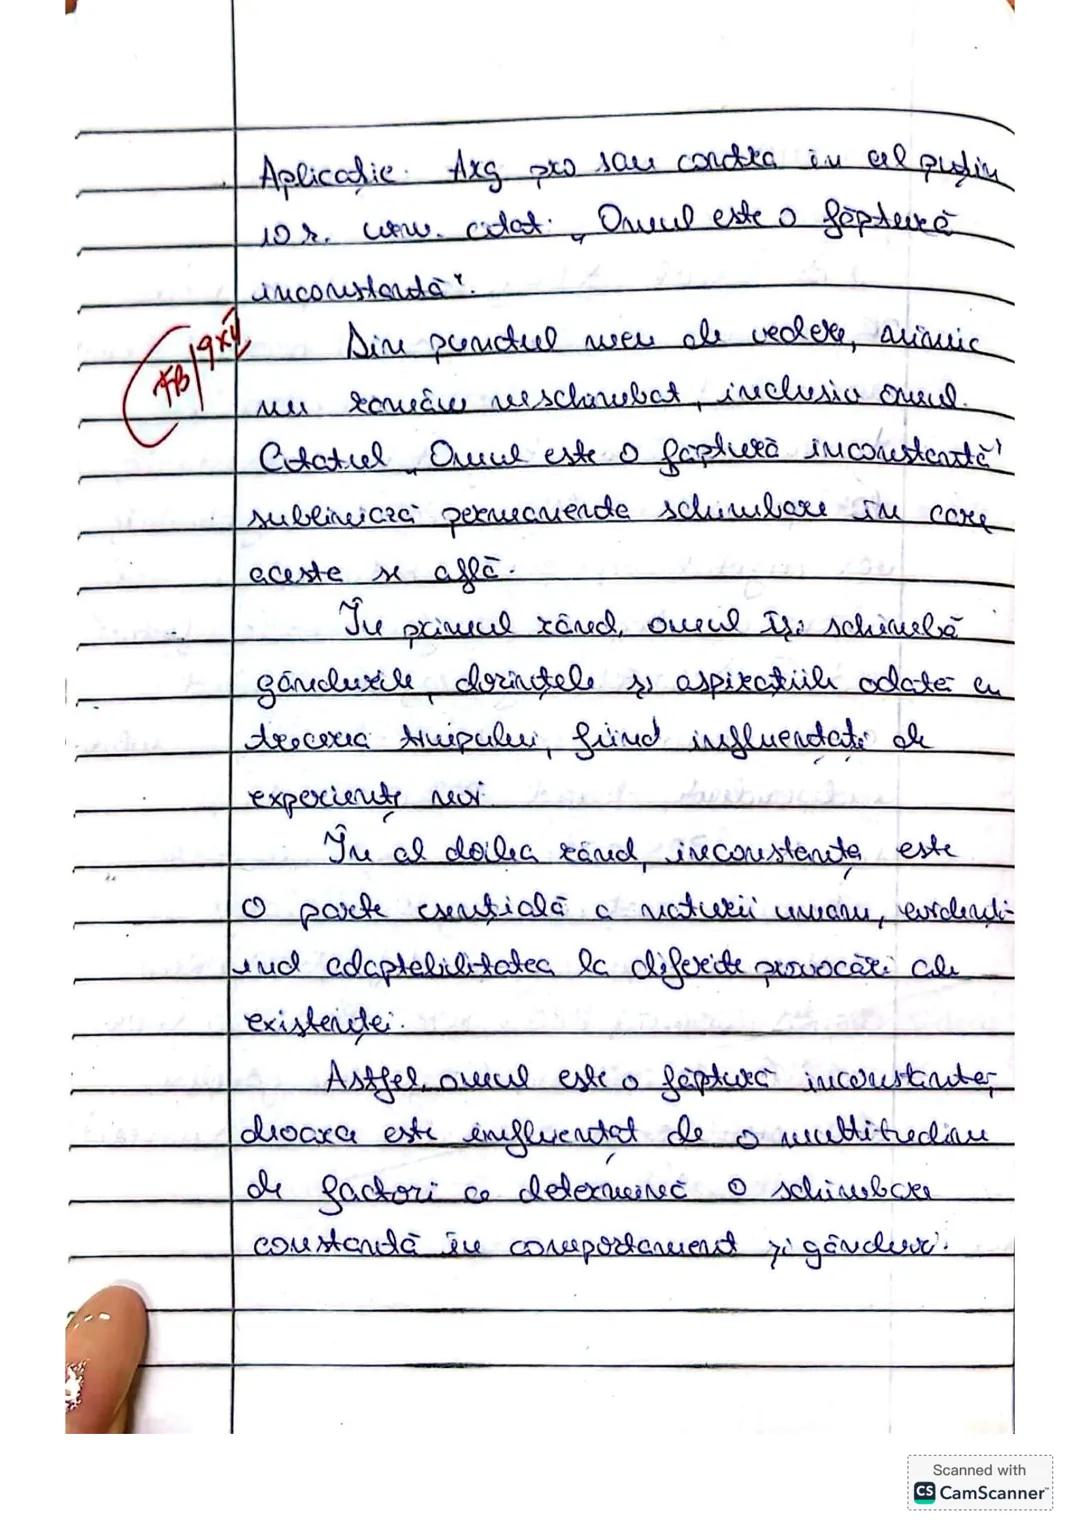 Aplicație. Arg pro sau contra în cel puțin
10 r. urm. citat: „Omul este o făptură
inconstantă".
FB | 9 XII
Din punctul meu de vedere, nimic
nu rămâne neschimbat, inclusiv omul.
Citatul „Omul este o făptură inconstantă"
subliniază permanenta schimbare în care
aceste se află.
În primul rând, omul își schimbă
gândurile, dorințele și aspirațiile odată cu
trecerea timpului, fiind influențați de
experiențe noi.
În al doilea rând, inconstanța este
o parte esențială a naturii umane, evidenți-
ind adaptabilitatea la diferite provocări ale
existenței.
Astfel, omul este o făptură inconstantă,
deoarece este influențat de o multitudine
de factori ce determină o schimbare
constantă în comportament și gânduri.
Scanned with
CS CamScanner